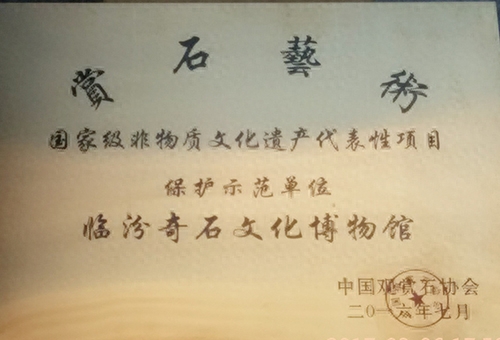 赏石藝術
国家级非物质文化遗产代表性项目
保护示范单位
临汾奇石文化博物馆
中国观赏石协会
二〇一六年七月